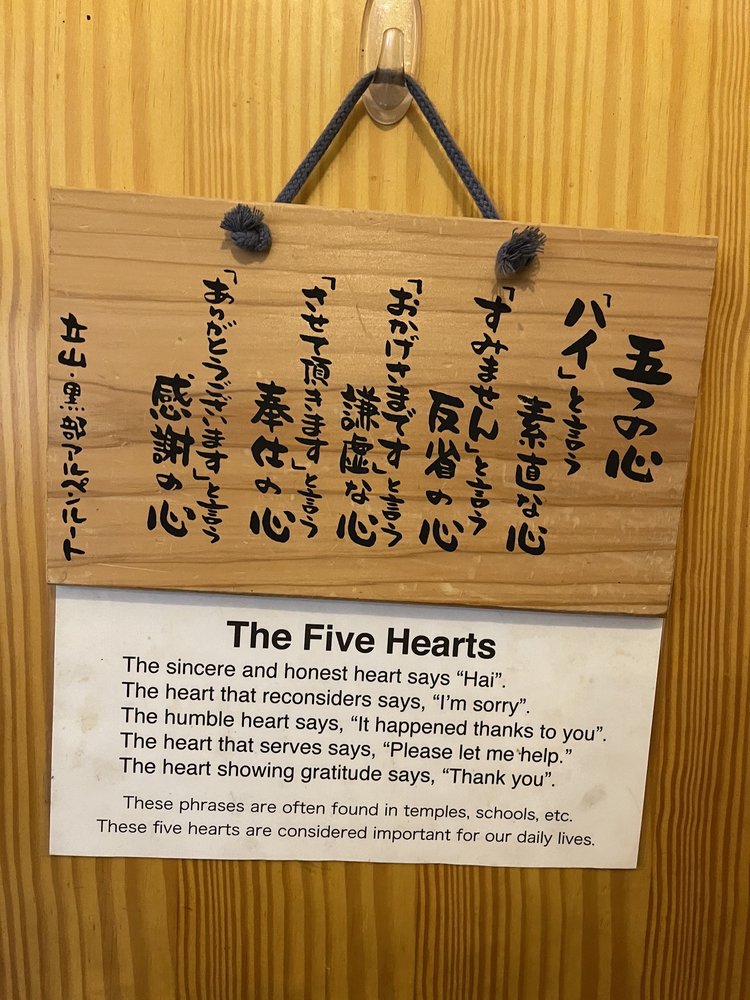 五つの心
「ハイ」と言う
素直な心
「すみません」と言う
反省の心
「おかげさまです」と言う
謙虚な心
「させて頂きます」と言う
奉仕の心
「ありがとうございます」と言う
感謝の心
立山・黒部アルペンルート
The Five Hearts
The sincere and honest heart says “Hai”.
The heart that reconsiders says, “I’m sorry”.
The humble heart says, “It happened thanks to you”.
The heart that serves says, “Please let me help.”
The heart showing gratitude says, “Thank you”.
These phrases are often found in temples, schools, etc.
These five hearts are considered important for our daily lives.